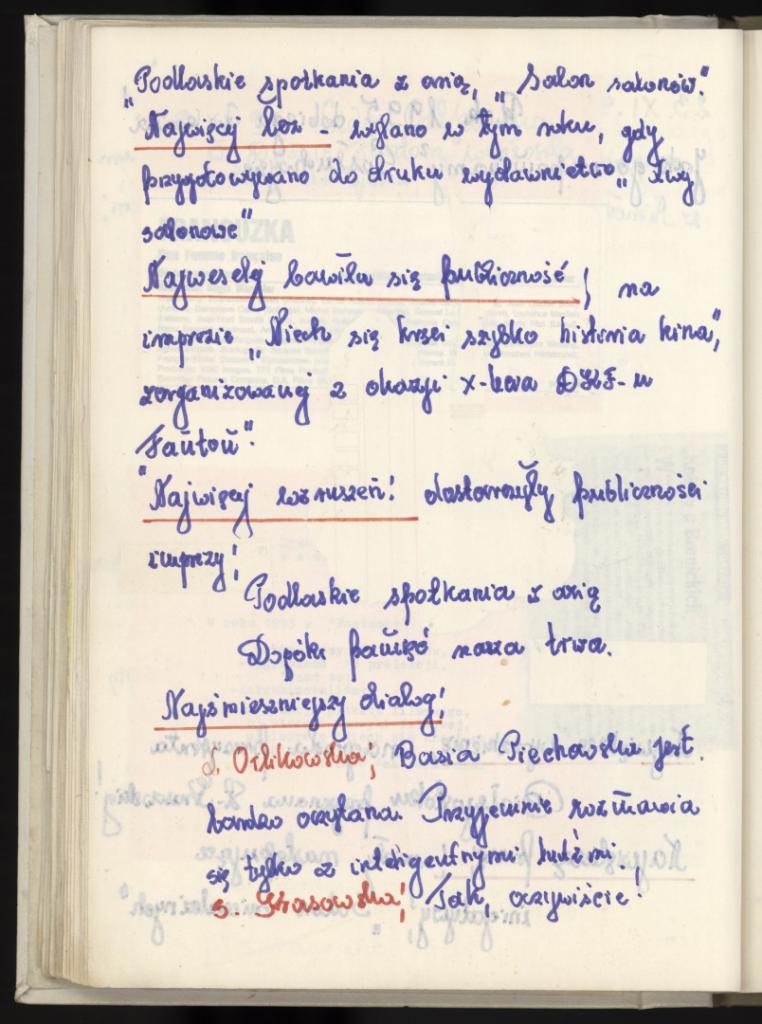 "Podlaskie spotkania z arią, "Salon salonów".
"Najwięcej łez - wylano w tym roku, gdy
przygotowywano do druku wydawnictwo "Łzy
salonowe"
Najweselej bawiła się publiczność, na
imprezie "Niech się kręci szybko historia kina",
zorganizowanej z okazji X-lecia DKF-u
Fauton".
"Najwięcej wzruszeń! dostarczyły publiczności
imprezy:
Podlaskie spotkania z arią
Dopóki pamięć nasza trwa.
Najśmieszniejszy dialog:
J. Orlikowska: Basia Piechowska jest
bardzo oczytana. Przyjemnie rozmawia
się tylko z inteligentnymi ludźmi.
S. Grasowska: Tak, oczywiście!